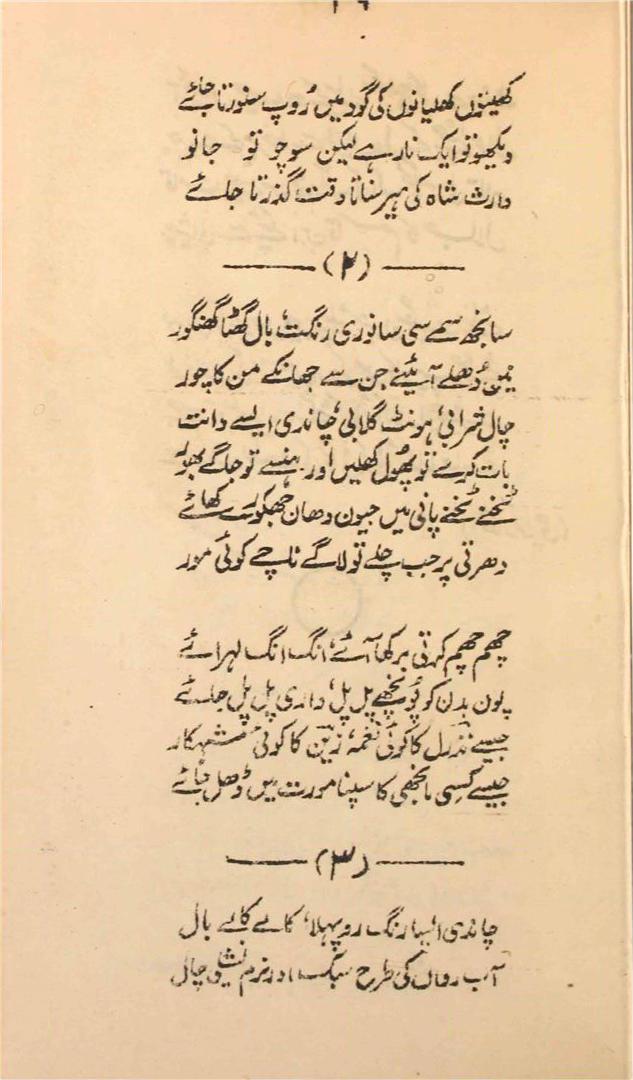 کھیتوں کھلیانوں کی گود میں رُوپ سنورتا جائے
دیکھو تو ایک نار ہے لیکن سوچو تو جانو
وارث شاہ کی ہیر سناتا وقت گذرتا جائے
(۲)
سانجھ سمے سی سانوری رنگت، بال گھٹا گھنگور
نیں دُھلے آئینے جن سے جھانکے من کا چور
چال شرابی، ہونٹ گلابی، چاندی ایسے دانت
بات کرے تو پھول کھلیں اور ہنسے تو جاگے بھور
ٹخنے ٹخنے پانی میں جیون دھان جھکولے کھائے
دھرتی پر جب چلے تو لاگے ناچے کوئی مور
چھم چھم کرتی برکھا آئے، انگ انگ لہرائے
پون بدن کو پُونچھے پل پل، واری پل پل جائے
جیسے نذرل کا کوئی نغمہ، زین کا کوئی شہکار
جیسے کسی مانجھی کا سپنا مورت میں ڈھل جائے
(۳)
چاندی ایسا رنگ روپہلا، کالے کالے بال
آب رواں کی طرح سبک اور نرم نشیلی چال